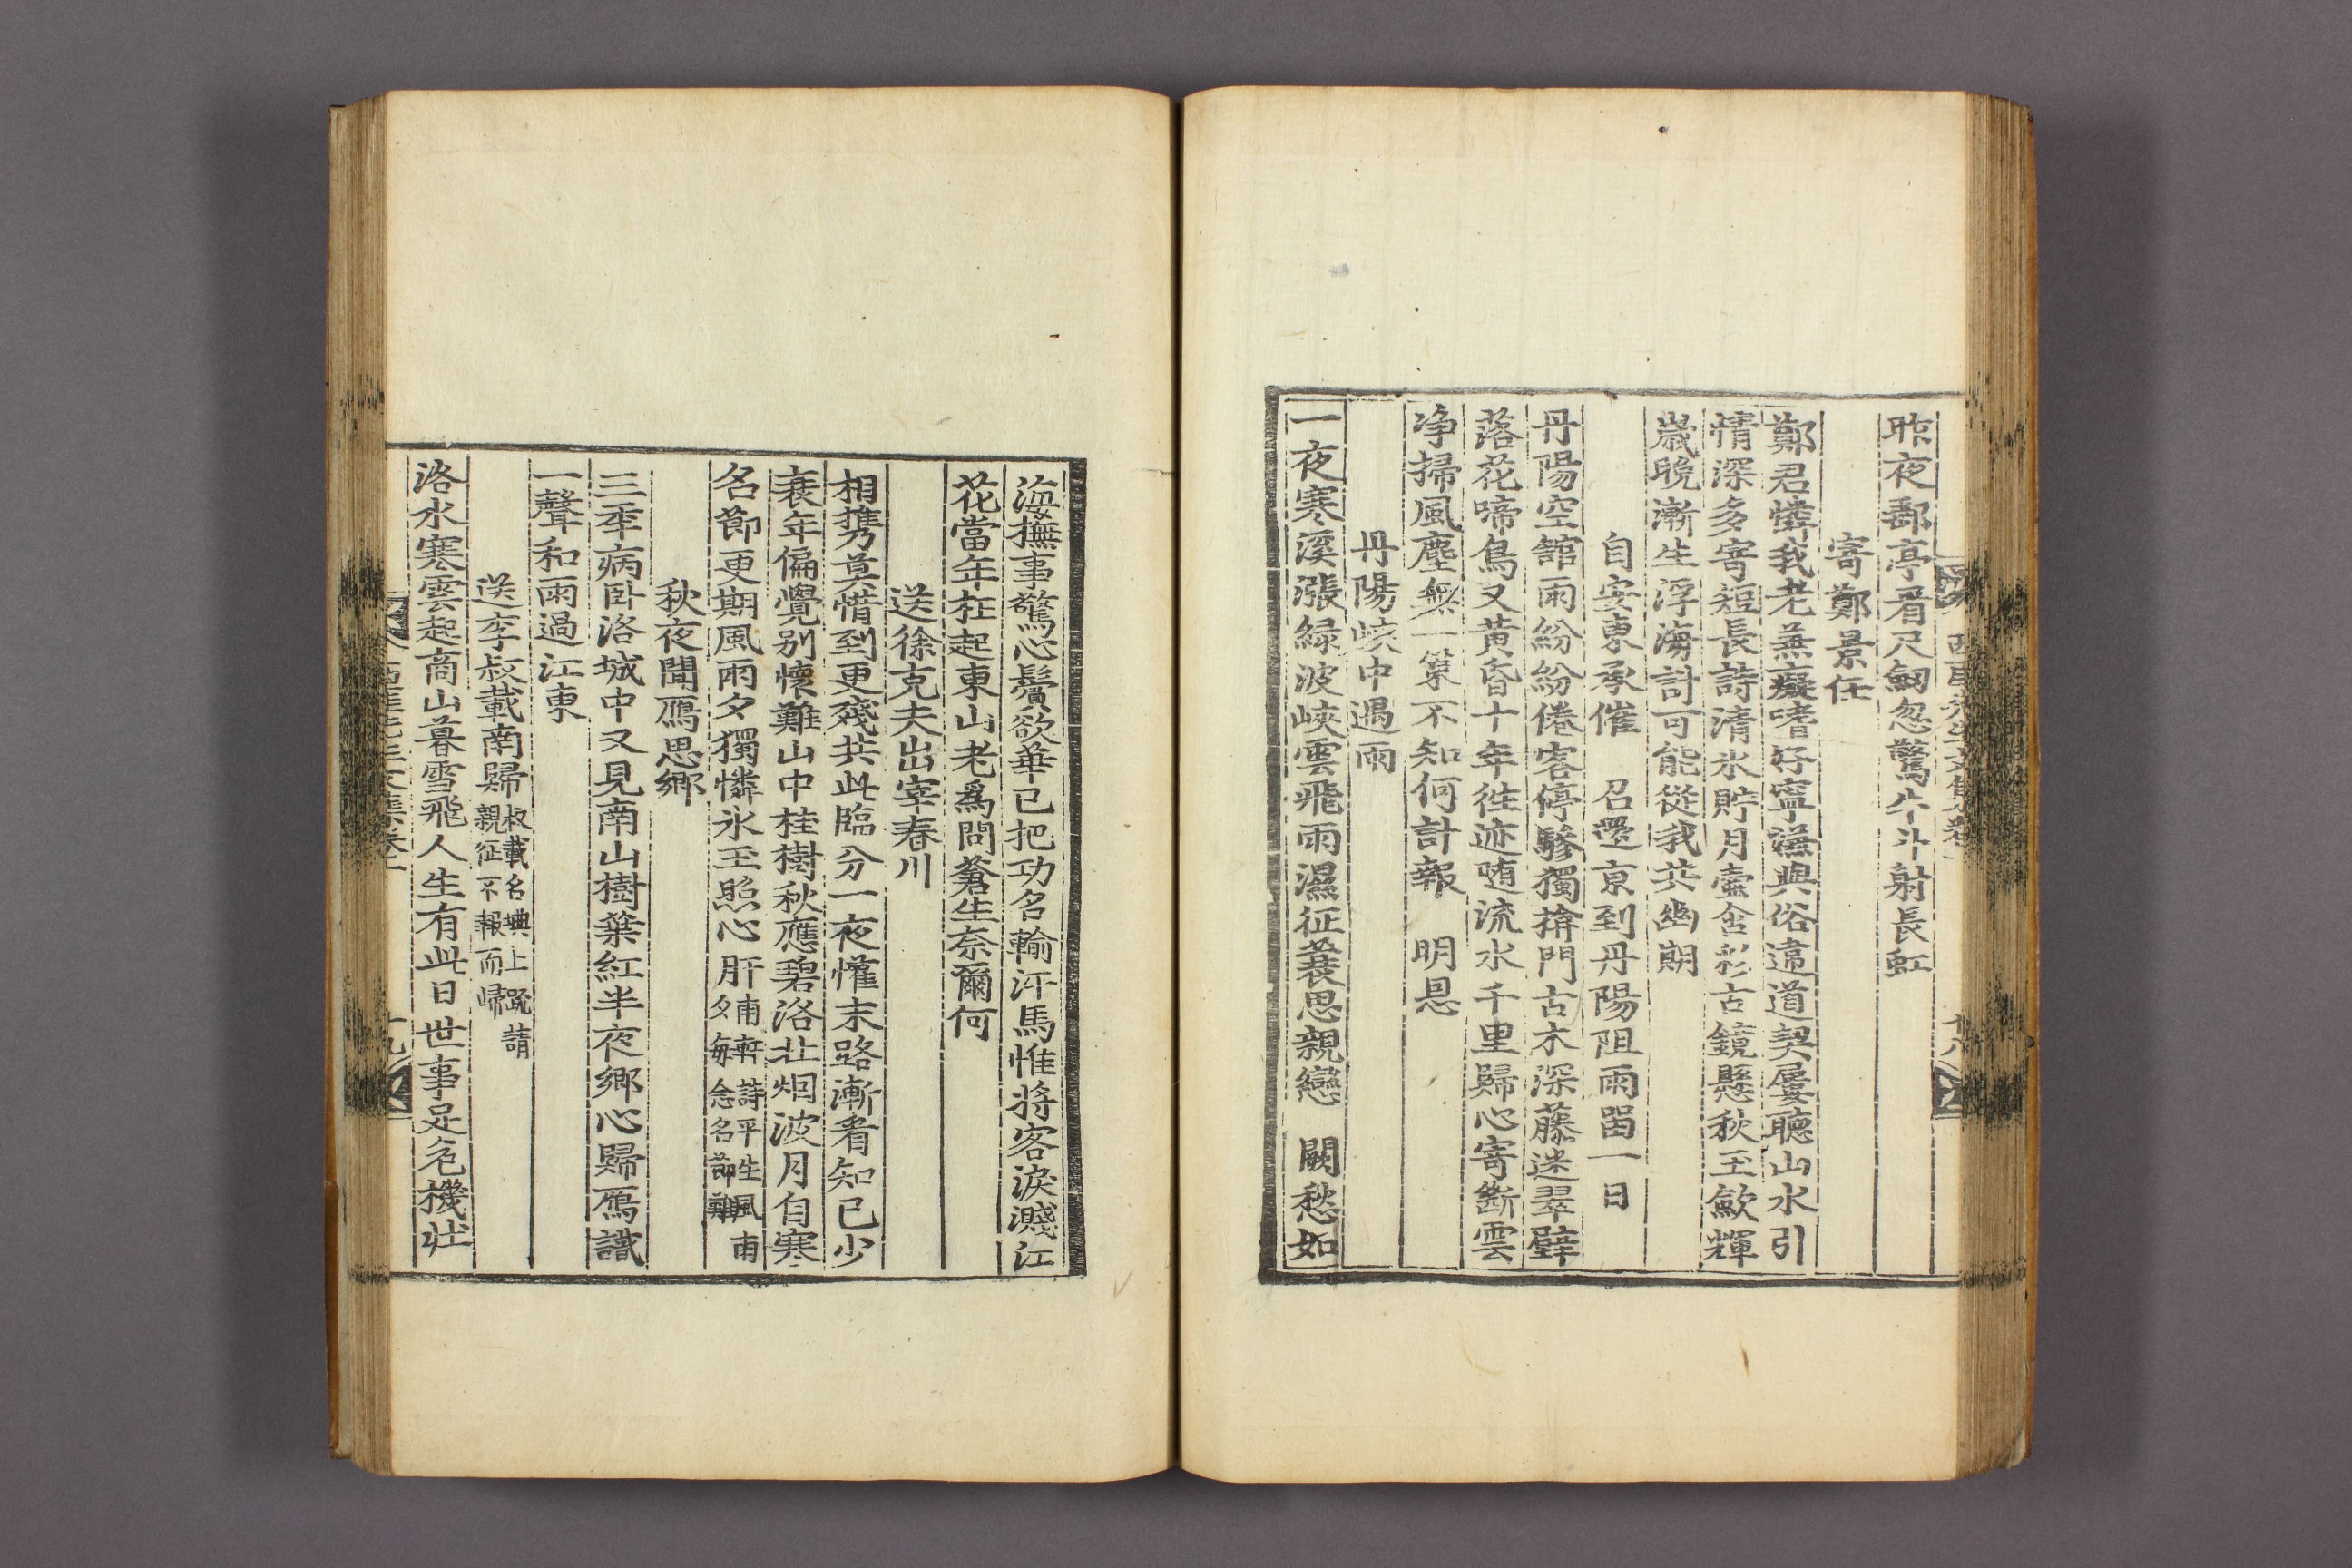 昨夜郵亭看尺劒忽驚牛斗射長虹
寄鄭景任
鄭君憐我老無癡嗜好寧湏與俗違道契屢聽山水引
情深多寄短長詩清氷貯月壷含彩古鏡懸秋玉歛輝
歲晩漸生浮海計可能從我共幽期
自安東承催 召還京到丹陽阻雨留一日
丹陽空舘雨紛紛倦客停驂獨揜門古木深藤迷翠壁
落花啼鳥又黄昏十年徃迹随流水千里歸心寄斷雲
净掃風塵無一策不知何計報 明恩
丹陽峽中遇雨
一夜寒溪漲緑波峽雲飛雨濕征蓑思親戀 闕愁如
海撫事驚心鬢欲華已把功名輸汗馬惟將客淚濺江
花當年枉起東山老爲問蒼生奈爾何
送徐克夫出宰春川
相携莫惜到更殘共此臨分一夜懽末路漸看知己少
衰年偏覺别懷難山中桂樹秋應碧洛北烟波月自寒
名節更期風雨夕獨憐氷玉照心肝
甫軒詩平生風甫
夕每念名節難
秋夜聞鴈思鄉
三年病卧洛城中又見南山樹葉紅半夜鄉心歸鴈識
一聲和雨過江東
送李叔載南歸
叔載名㙉上䟽請
親征不報而歸
洛水寒雲起商山暮雪飛人生有此日世事足危機壯